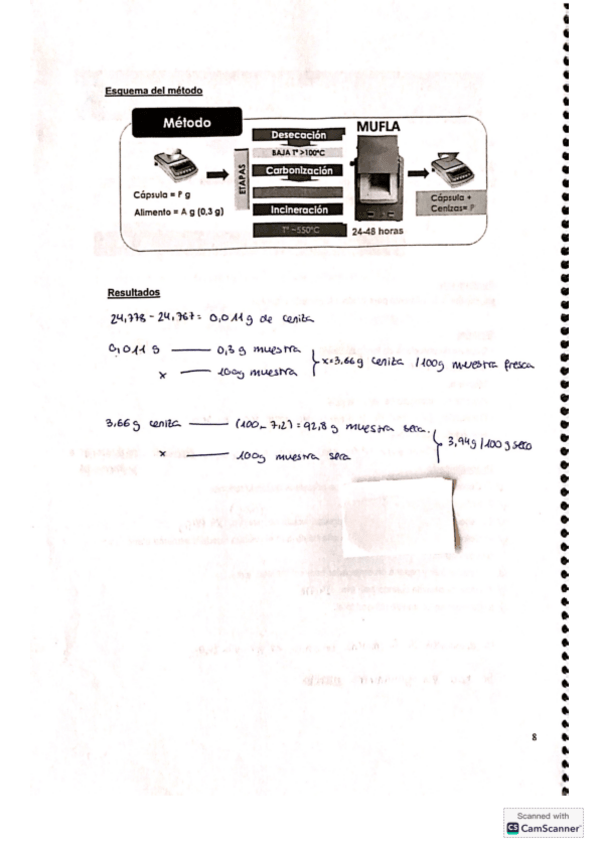 Esquema del método
Método
MUFLA
Desecación
BAJA Tª >100ºC
ETAPAS
Carbonización
Cápsula = P g
Alimento = A g (0,3 g)
Incineración
Tª ~550ºC
24-48 horas
Cápsula +
Cenizas= P'
Resultados
24,778 - 24,767 = 0,011 g de ceniza
0,011 g — 0,3 g muestra
x — 100g muestra
x=3,66 g ceniza / 100g muestra fresca
3,66 g ceniza — (100 - 7,2) = 92,8 g muestra seca.
x — 100g muestra seca
3,94g / 100 g seco
8
Scanned with
CS CamScanner